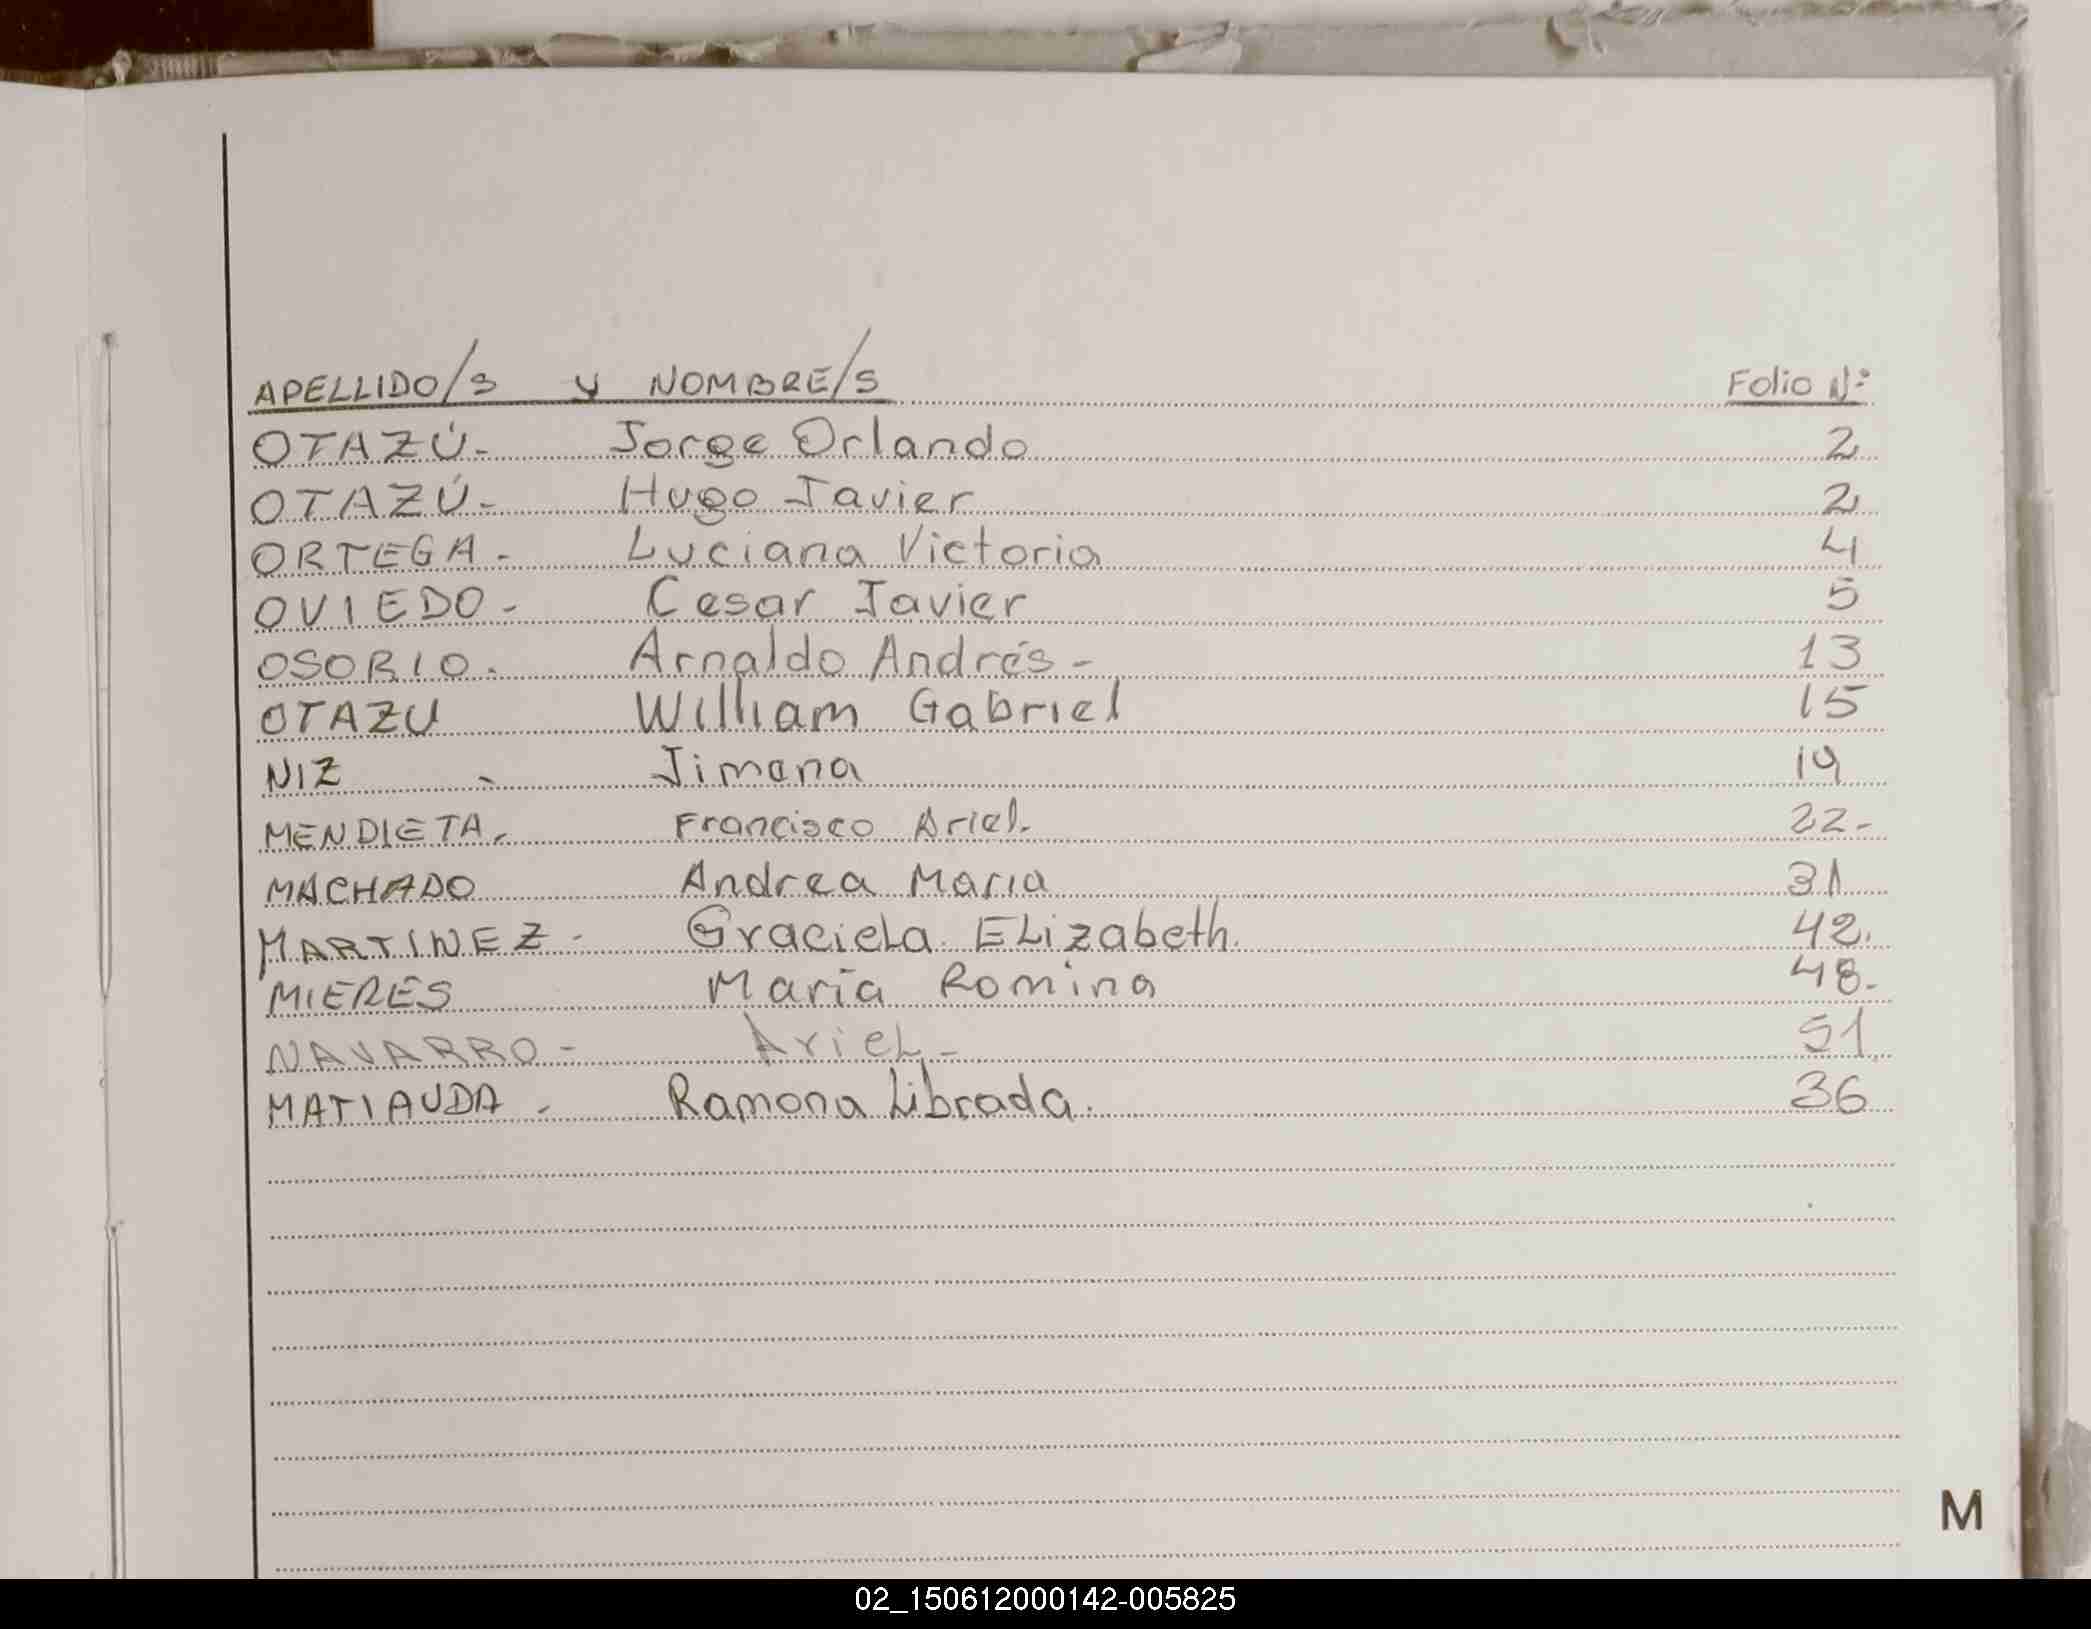 APELLIDO/S y NOMBRE/S Folio Nº
OTAZÚ- Jorge Orlando 2
OTAZÚ- Hugo Javier 2
ORTEGA- Luciana Victoria 4
OVIEDO- Cesar Javier 5
OSORIO- Arnaldo Andrés- 13
OTAZU William Gabriel 15
NIZ - Jimena 19
MENDIETA- Francisco Ariel. 22-
MACHADO Andrea Maria 31
MARTINEZ- Graciela Elizabeth. 42.
MIERES María Romina 48-
NAVARRO- Ariel- 51
MATIAUDA- Ramona Librada. 36
M
02_150612000142-005825